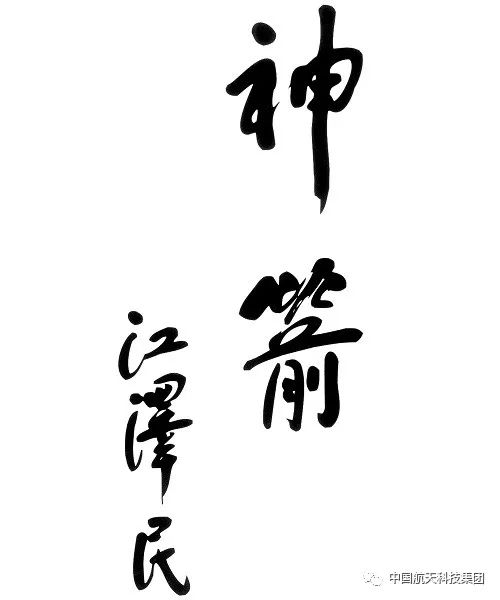 神箭
江泽民
中国航天科技集团